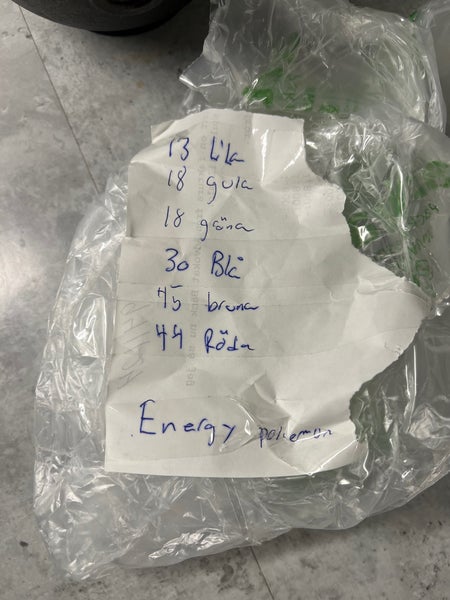 13 Lila
18 gula
18 gröna
30 Blå
45 bruna
44 Röda
Energy pokemon